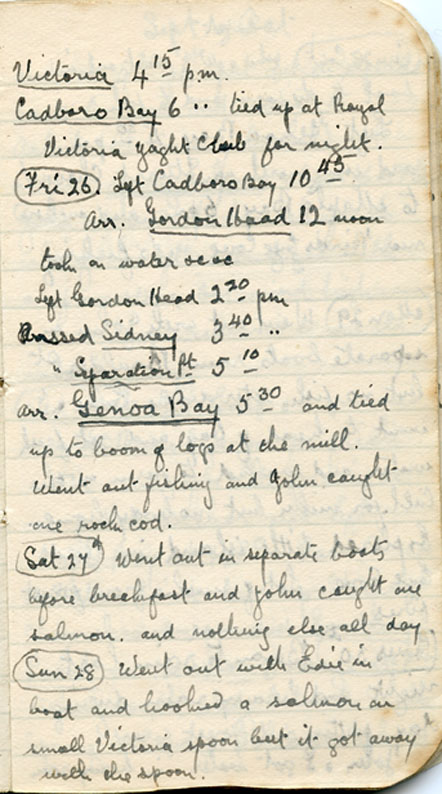 Victoria 4 15 pm.
Cadboro Bay 6 " tied up at Royal
Victoria Yaght Club for night.
Fri 26 Left Cadboro Bay 10 45.
Arr. Gordon Head 12 noon
took on water &c &c
Left Gordon Head 2 20 pm
Passed Sidney 3 40 "
" Separation Pt 5 10
arr. Genoa Bay 5 30 and tied
up to boom of logs at the mill.
Went out fishing and John caught
one rock cod.
Sat 27th Went out in separate boats
before breakfast and John caught one
salmon. and nothing else all day
Sun 28 Went out with Edie in
boat and hooked a salmon on
small Victoria spoon but it got away
with the spoon.